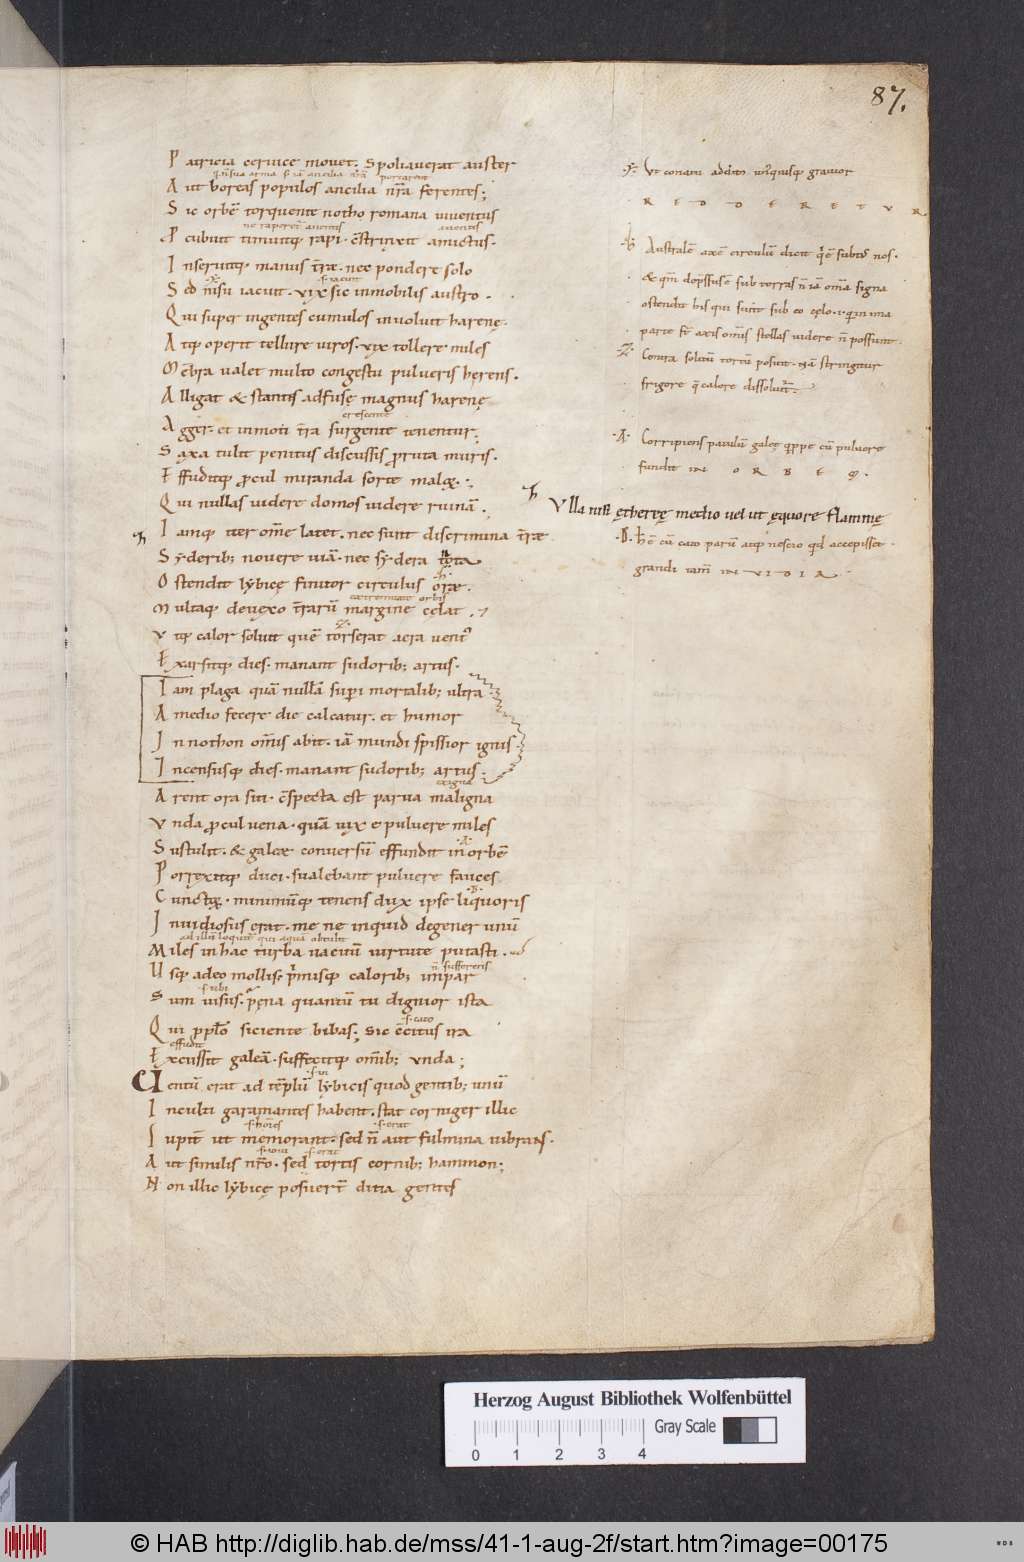 87.
Patricia cervice movet. Spoliaverat auster
Aut boreas populos ancilia nr̄a ferentes;
Sic orbē torquente notho romana iuventus
Pcubuit timuitq; rapi. cstrinxit amictus.
Inseruitq; manus t̄ræ. nec pondere solo
Sed nisu iacuit. vix sic inmobilis austro.
Qui super ingentes cumulos involvit harenę.
Atq; operit tellure viros. vix tollere miles
M̄bra valet multo congestu pulveris herens.
Alligat & stantis adfusę magnus harenę
Agger. et inmoti t̄ra surgente tenentur.
Saxa tulit penitus discussis pruta muris.
Effuditq; pcul miranda sorte maloꝝ.
Qui nullas videre domos videre ruinā.
Iamq; iter om̄e latet. nec sunt discrimina t̄ræ
Syderib; novere viā. nec sydera tota
Ostendit lybicę finitor circulus oræ.
Multaq; devexo t̄rarū margine cęlat.
Utq; calor solvit quē torserat aera vent᷒
Exarsitq; dies. manant sudorib; artus.
Iam plaga quā nullā sup̄i mortalib; ultra
A medio fecere die calcatur. et humor
In nothon om̄is abit. iā mundi spissior ignis.
Incensusq; dies. manant sudorib; artus.
Arent ora siti. cspecta est parva maligna
Unda pcul vena. quā vix e pulvere miles
Sustulit. & galeæ conversū effundit in orbē
Porrexitq; duci. sualebant pulvere fauces
Cunctoꝝ. minimūq; tenens dux ipse liquoris
Invidiosus erat. me ne inquid degener unū
Miles in hac turba vacuū virtute putasti.
Usq; adeo mollis. p̄misq; caloríb; inpar
Sum visus. pęna quantū tu dignior ista
Qui pplo siciente bibas; Sic ccitus ira
Excussit galeā. suffexitq; om̄ib; unda;
Ventū erat ad tēplū lybicis quod gentib; unū
Inculti garamantes habent. stat corniger illic
Iupit̄ ut memorant. sed n̄ aut fulmina vibrans.
Aut similis nr̄o. sed tortis cornib; hammon;
Non illic lybicę posuer̄t ditia gentes
Ut conatu addito utriusq; gravior
REDDERETUR
Australē axē circulū dicit q̄ ē subtus nos.
& qm̄ dep̄ssus ē sub terras n̄ iā om̄ia signa
ostendit his qui sunt sub eo cęlo
parte axis om̄is stellas videre n̄ possunt.
Contra solitū tortū posuit. nā stringitur
frigore q̄ calore dissolvit̄.
Corripiens patulū galeę quippe cū pulvere
fundit IN ORBEM.
Ulla nisi ętherę medio velut ęquore flammę
cū cato parū atq; nescio qd accepisset
grandi tam̄ INVIDIA
Herzog August Bibliothek Wolfenbüttel
Gray Scale
0 1 2 3 4
© HAB http://diglib.hab.de/mss/41-1-aug-2f/start.htm?image=00175